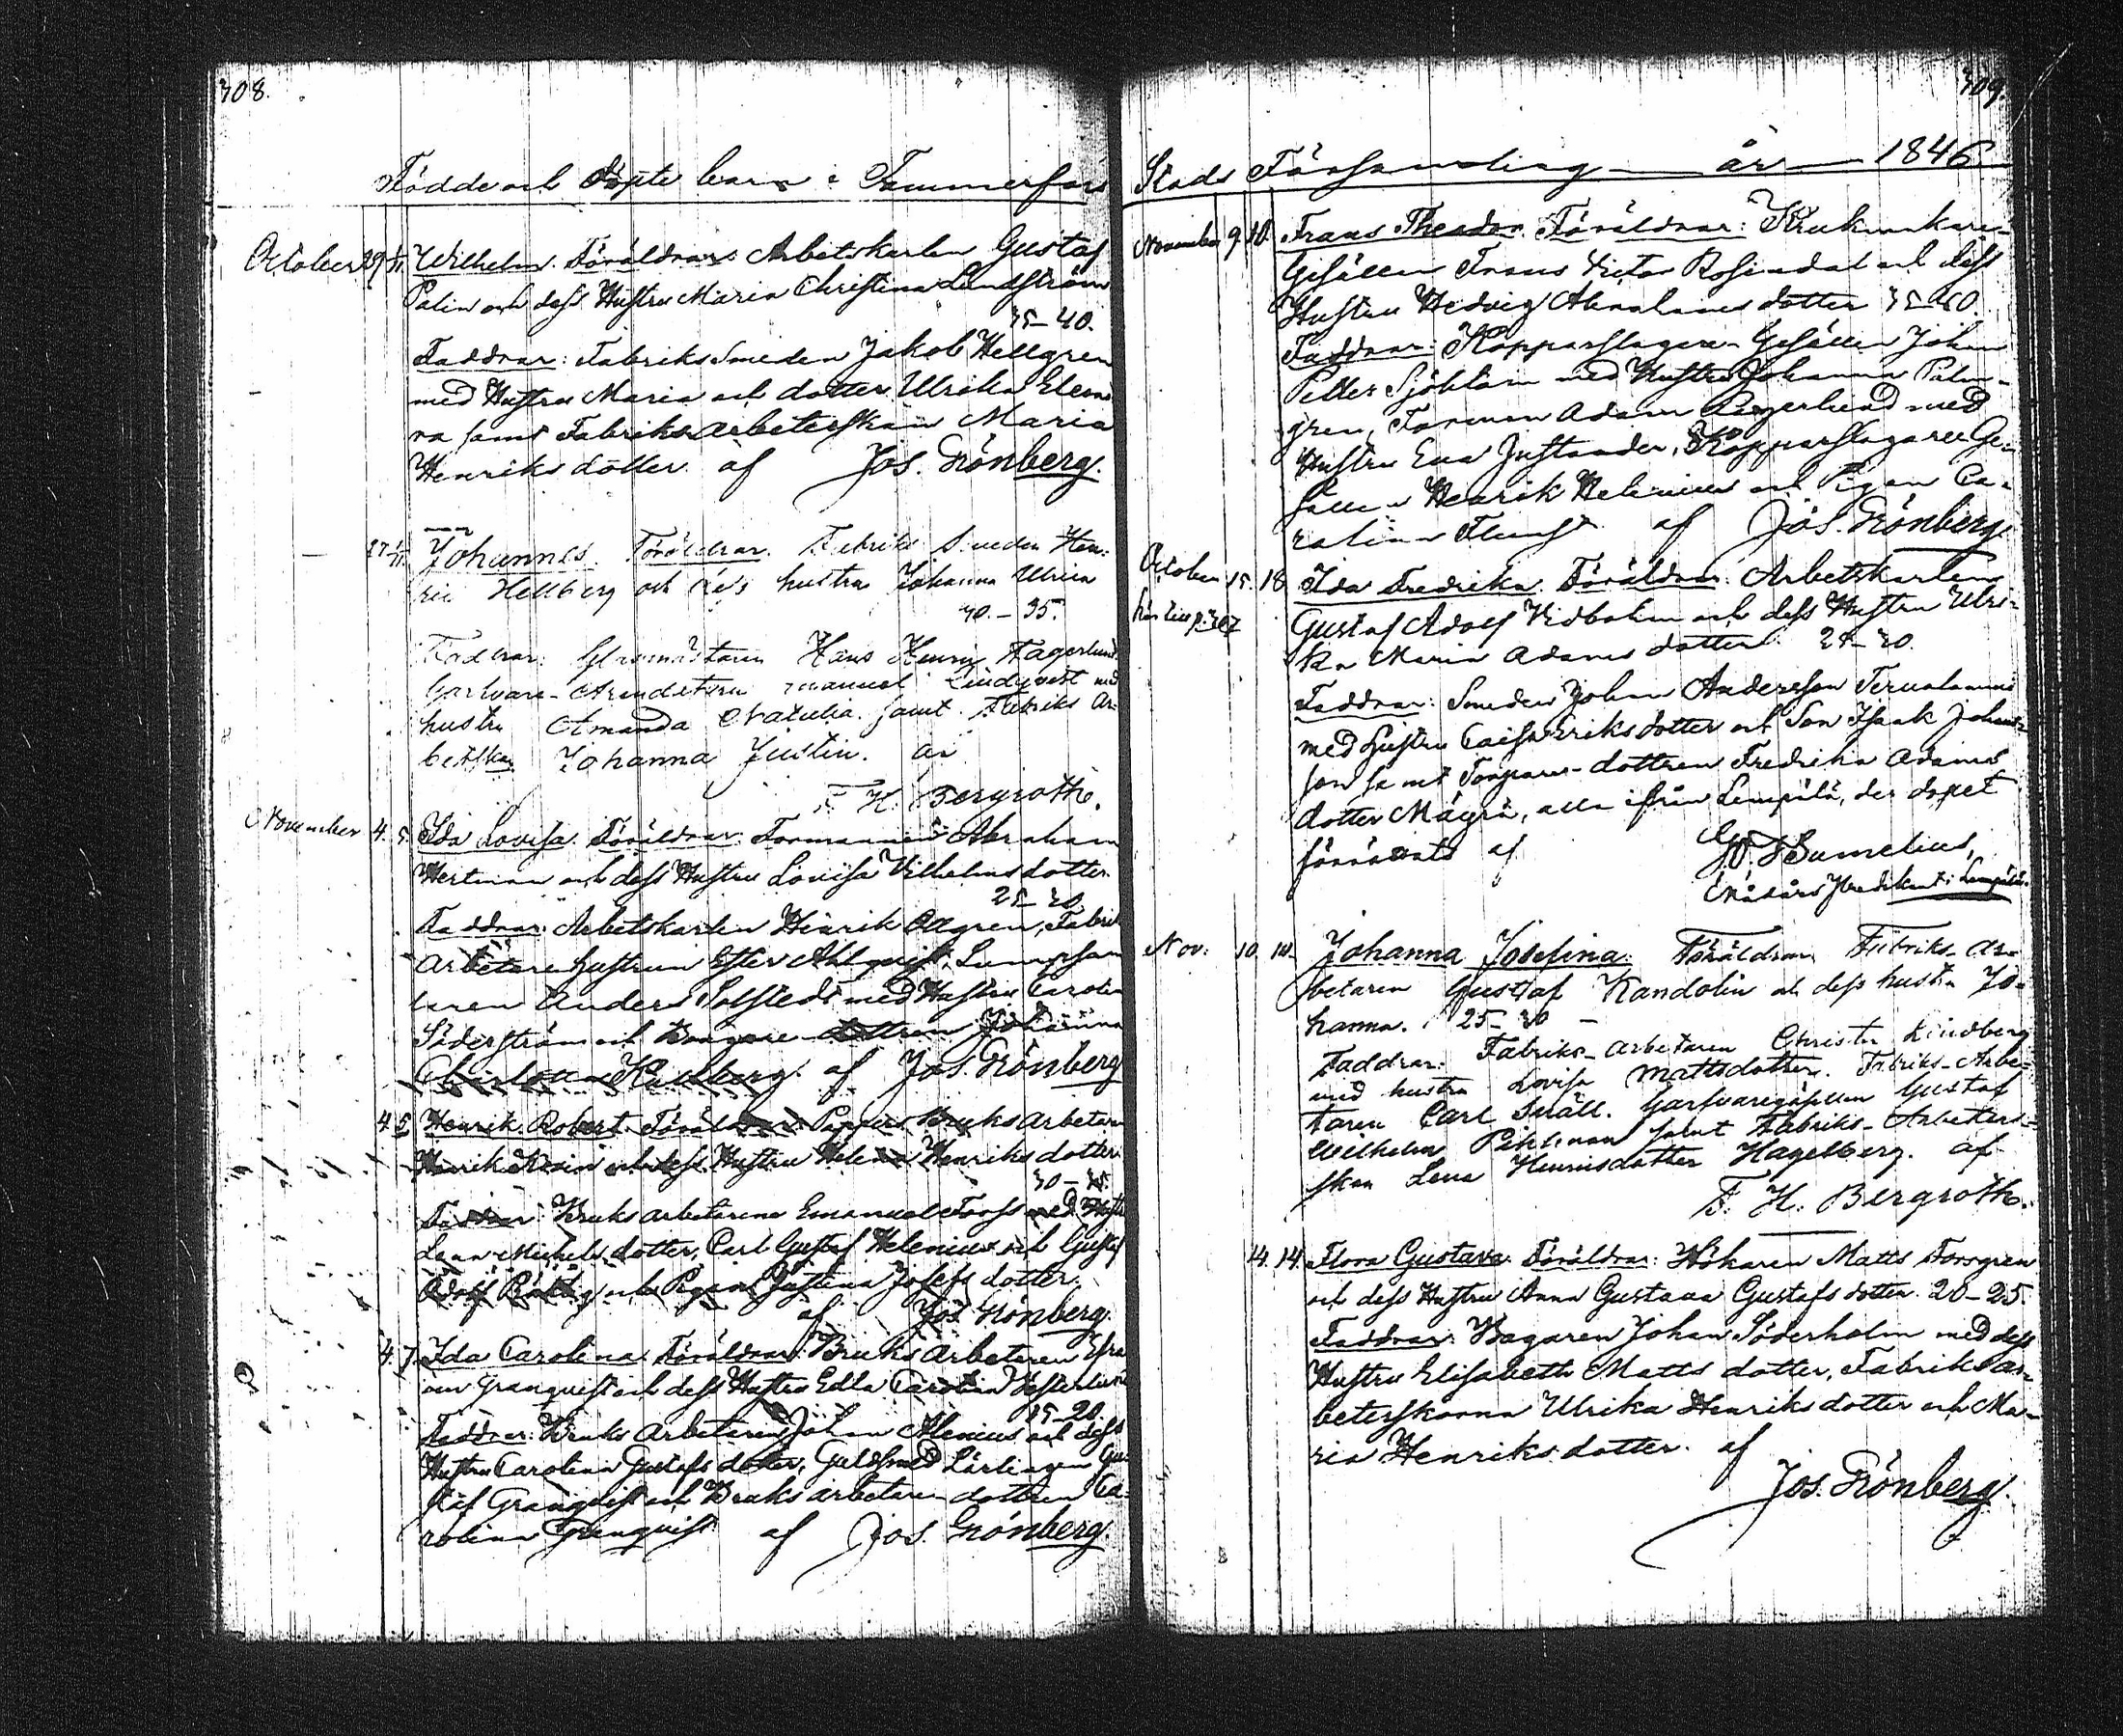 308.
Födde och Döpte barn i Tammerfors
October 29 1/11. Wilhelm. Föräldrar: Arbetskarlen Gustaf
Palin och dess Hustru Maria Christina Lundström
35–40.
Faddrar: Fabriks Smeden Jakob Hellgren
med Hustru Maria och dotter Ulrika Eleono
ra samt Fabriks arbeterskan Maria
Henriks dotter. af Jos. Grönberg.
27 1/11. Johannes. Föräldrar. Fabriks Smeden Hen-
ric Hellberg och des hustru Johanna Ulrica
30.–35.
Faddrar: Glasmästaren Hans Henry Fagerlund
Garfvare- Emanuel Lindqvist med
hustru Amanda Natalia. samt. Fabriks Ar-
betskan Johanna Justin. av
F. H. Bergroth.
November 4. 5. Ida Lovisa. Föräldrar: Formannen Abraham
Hertman och dess Hustru Lovisa Vilhelms dotter.
25–30.
Faddrar: Arbetskarlen Henrik Allgren, Fabriks
Arbetare hustrun Ester Ahlqvist,
Anders Solstedt med Hustru Carolina
Söderström och dottren Johanna
af Jos. Grönberg
4. 5. Henrik Robert. Föräldrar: Pappers Bruks arbetaren
Henrik och dess Hustru Helena Henriks dotter.
30–35.
Faddrar: Bruks arbetarene Emanuel Forss med Hustru
Lena Michels dotter, Carl Gustaf Helenius och Gustaf
Adolf och Pigan Justina Josefs dotter.
af Jos. Grönberg.
4. 7. Ida Carolina. Föräldrar: Bruks Arbetaren Efra
im Granqvist och dess Hustru Edla Carolina
15–20.
Faddrar: Bruks Arbetaren Johan Alenius och dess
Hustru Carolina Gustafs dotter, Guldsmeds Lärlingen Gu-
staf Granqvist och Bruks arbetare dottren Ca-
rolina Granqvist af Jos. Grönberg.
309.
Stads Församling år 1846
November 9. 10. Frans Theodor. Föräldrar: Krukmakare
Gesällen Frans Victor Rosendal och dess
Hustru Hedvig Abrahams dotter 35–40.
Faddrar: Kopparslagare- Gesällen Johan
Petter Sjöblom med Hustru Johanna Palm-
gren, Forman Adam Lagerlund med
Hustru Eva Justander, Kopparslagare Ge-
sällen Henrik Helenius och Pigan Ca-
rolina af Jos. Grönberg
October 15. 18. Ida Fredrika. Föräldrar: Arbetskarlen
hör till p. 307 Gustaf Adolf Vidbohm och dess Hustru Ulri-
ka Maria Adams dotter. 25–30.
Faddrar: Smeden Johan Andersson
med hustru Caisa Eriks dotter och Son Isaak Johans-
son samt Torpare- dottren Fredrika Adams
dotter Mäyrä, alla ifrån Lempälä, der dopet
förrättats af G. F. Sumelius,
Nådårs Predikant i Lempälä.
Nov: 10. 14. Johanna Josefina. Föräldrar: Fabriks- Ar-
betaren Gustaf Kandolin och dess hustru Jo-
hanna. 25–30 –
Faddrar: Fabriks- arbetaren Christer Lindberg
med hustru Lovisa Mattsdotter. Fabriks- Arbe-
taren Carl Snäll. Garfvaregesällen Gustaf
Wilhelm Pihlman samt Fabriks- Arbeters-
skan Lena Henricsdotter Hagelberg. af
F. H. Bergroth.
14. 14. Flora Gustava. Föräldrar: Hökaren Matts Forsgren
och dess Hustru Anna Gustava Gustafs dotter. 20–25.
Faddrar: Bagaren Johan Söderholm med dess
Hustru Elisabeth Matts dotter, Fabriks ar-
beterskorna Ulrika Henriks dotter och Ma-
ria Henriks dotter. af
Jos. Grönberg.